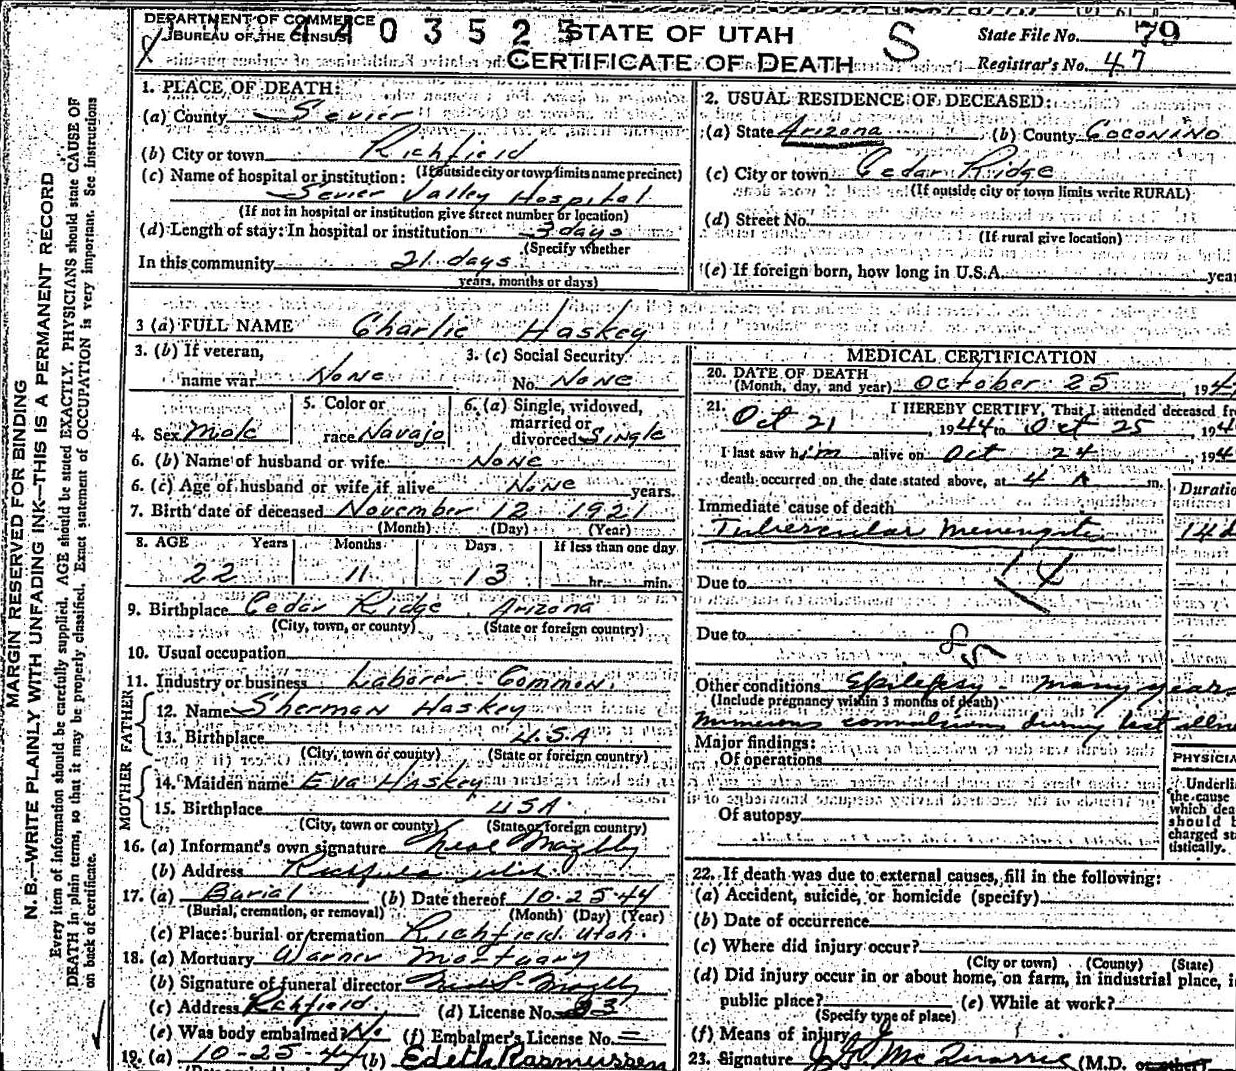 DEPARTMENT OF COMMERCE
BUREAU OF THE CENSUS
4 4 0 3 5 2
STATE OF UTAH
CERTIFICATE OF DEATH
S
State File No. 79
Registrar's No. 47
MARGIN RESERVED FOR BINDING
N. B.—WRITE PLAINLY WITH UNFADING INK—THIS IS A PERMANENT RECORD
Every item of information should be carefully supplied. AGE should be stated EXACTLY. PHYSICIANS should state CAUSE OF
DEATH in plain terms, so that it may be properly classified. Exact statement of OCCUPATION is very important. See instructions
on back of certificate.
1. PLACE OF DEATH:
(a) County Sevier
(b) City or town Richfield
(If outside city or town limits name precinct)
(c) Name of hospital or institution:
Sevier Valley Hospital
(If not in hospital or institution give street number or location)
(d) Length of stay: In hospital or institution 3 days
(Specify whether
In this community 21 days
years, months or days)
2. USUAL RESIDENCE OF DECEASED:
(a) State Arizona (b) County Coconino
(c) City or town Cedar Ridge
(If outside city or town limits write RURAL)
(d) Street No.
(If rural give location)
(e) If foreign born, how long in U.S.A. year
3 (a) FULL NAME Charlie Haskey
3. (b) If veteran,
name war None
3. (c) Social Security
No. None
4. Sex Male
5. Color or
race Navajo
6. (a) Single, widowed,
married or
divorced Single
6. (b) Name of husband or wife None
6. (c) Age of husband or wife if alive None years.
7. Birth date of deceased November 12 1921
(Month) (Day) (Year)
8. AGE Years Months Days If less than one day
22 11 13 hr. min.
9. Birthplace Cedar Ridge Arizona
(City, town, or county) (State or foreign country)
10. Usual occupation
11. Industry or business Laborer - Common.
FATHER
12. Name Sherman Haskey
13. Birthplace U.S.A
(City, town or county) (State or foreign country)
MOTHER
14. Maiden name Eva Haskey
15. Birthplace USA.
(City, town or county) (State or foreign country)
16. (a) Informant's own signature
(b) Address Richfield Utah
17. (a) Burial (b) Date thereof 10-25-44
(Burial, cremation, or removal) (Month) (Day) (Year)
(c) Place: burial or cremation Richfield Utah.
18. (a) Mortuary Warner Mortuary
(b) Signature of funeral director
(c) Address Richfield. (d) License No. 33
(e) Was body embalmed? No (f) Embalmer's License No. =
19. (a) 10-25-44 (b) Edeth Rasmussen
MEDICAL CERTIFICATION
20. DATE OF DEATH
(Month, day, and year) October 25, 194
21. I HEREBY CERTIFY, That I attended deceased fr
Oct 21, 1944 to Oct 25, 194
I last saw him alive on Oct 24, 194
death occurred on the date stated above, at 4 A m.
Duratio
Immediate cause of death
Tubercular Menengitis 14d
Due to
14
Due to
85
Other conditions Epilepsy - many years
(Include pregnancy within 3 months of death)
Numerous convulsions during last illn
Major findings:
Of operations
Of autopsy
PHYSICIA
Underli
the cause
which dea
should b
charged sta
tistically.
22. If death was due to external causes, fill in the following:
(a) Accident, suicide, or homicide (specify)
(b) Date of occurrence
(c) Where did injury occur?
(City or town) (County) (State)
(d) Did injury occur in or about home, on farm, in industrial place, i
public place? (e) While at work?
(Specify type of place)
(f) Means of injury
23. Signature McQuarrie (M.D. or other)